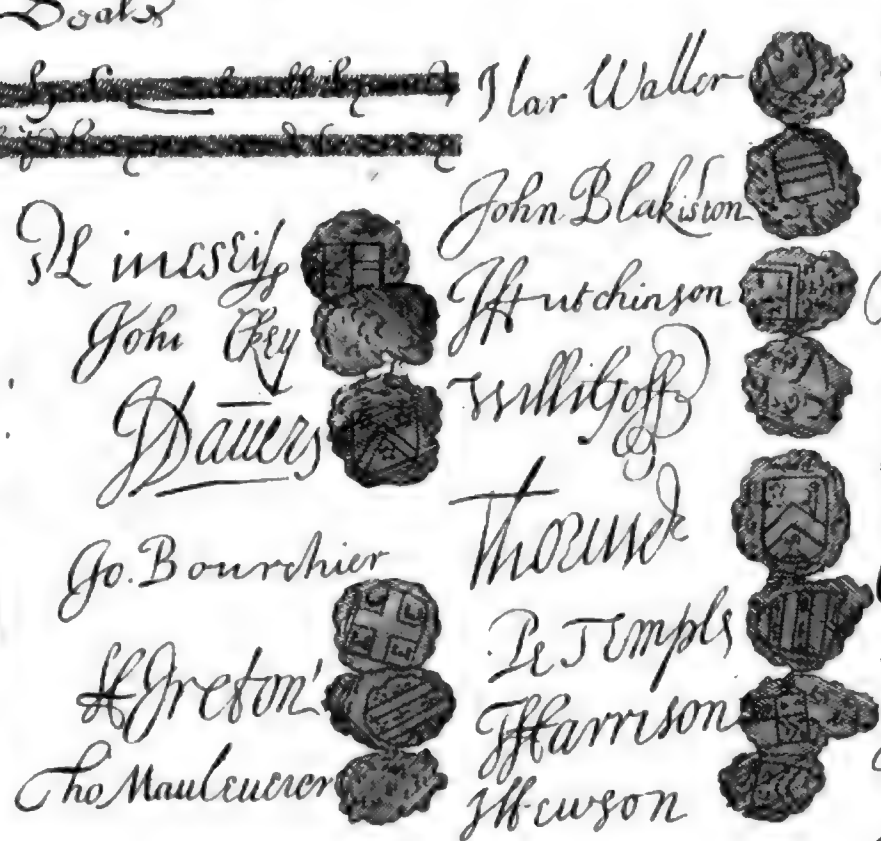 Seals
Liuesey
John Okey
J Dauers
Jo. Bourchier
H Ireton
Tho Mauleuerer
Har Waller
John Blakiston
J Hutchinson
Willi Goff
Tho Pride
Pe Temple
T Harrison
J Hewson